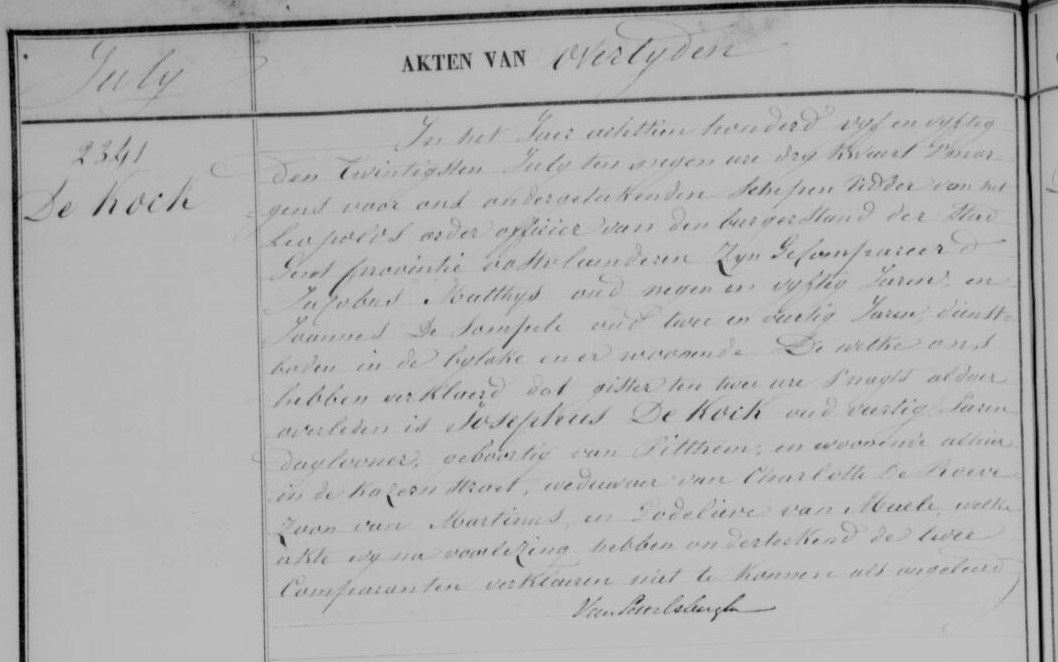 July
AKTEN VAN Overlyden
2341
De Kock
In het Jaer achttien honderd vyf en vyftig
den twintigsten July ten negen ure dry kwaert s'mor-
gens voor ons ondergeteekenden Schepen Ridder van het
Leopolds order officier van den burgerstand der Stad
Gent provintie oostvlaenderen Zyn Gecompareerd
Jacobus Matthys oud negen en vyftig Jaren, en
Joannes De Sompele oud twee en veertig Jaren, dienst-
boden in de byloke en er woonende De welke ons
hebben verklaerd dat gister ten twee ure s'nagts aldaer
overleden is Josephus De Kock oud veertig Jaren
daglooner, geboortig van Pitthem, en woonende alhier
in de Kazernstraet, weduwaer van Charlotte De Roeve
Zoon van Martinus, en Godelieve van Maele, welke
akte wy na voorlezing hebben onderteekend de twee
Comparanten verklaeren niet te konnen als ongeleerd